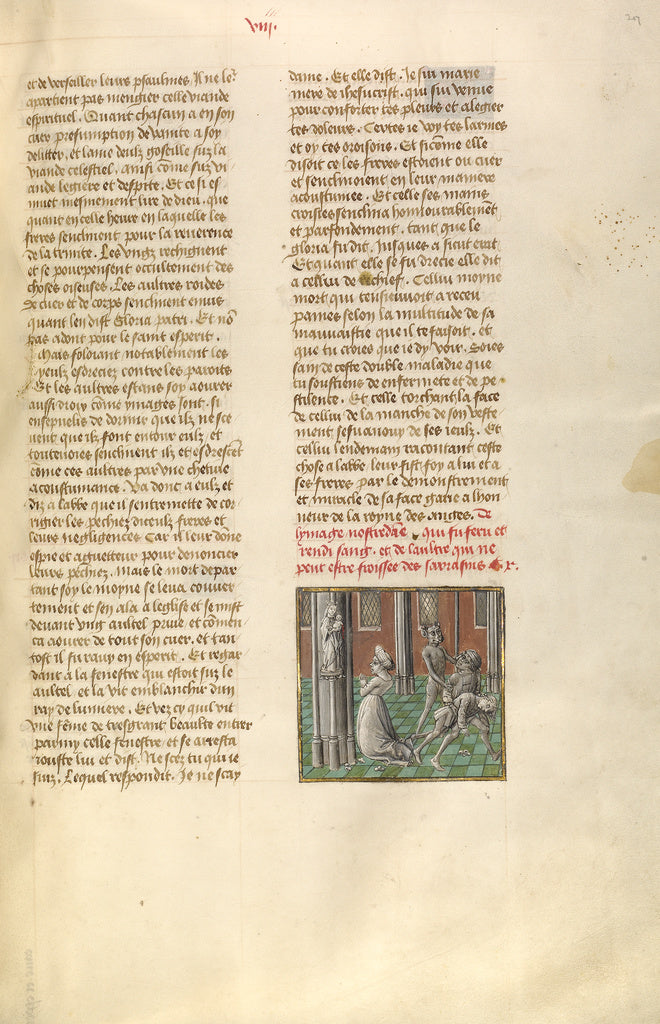 viii.
et de verseiller leurs psaulmes. Il ne le[ur]
apartient pas mengier celle viande
espirituel. Quant chascun a en son
cuer presumption de vanite a soy
deliter. et lame deulz gostille suz la
viande celestiel. ainsi cōme suz vi
ande legiere et despite. Et ce si es
muet mesmement lire de dieu. que
quant en celle heure en laquelle les
freres senclinent pour la reuerence
de la trinite. Les vngz rechignent
et se pourpensent occultement des
choses oiseuses. Les aultres roides
de cuer et de corps senclinent enuis
quant len dist Gloria patri. Et nō
pas adont pour le saint esperit.
Mais foloiant notablement les
yeulz esdreciez contre les parois
Et les aultres estans soy aourer
aussi droiz cōme ymages sont. si
enseuelis de dormir que ilz ne sce
uent que ilz font entour eulz. et
toutenoies senclinent ilz et esdrescēt
cōme ces aultres par vne chetiue
acoustumance. Va donc a eulz et
diz a labbe que il sentremette de cor
rigier les pechiez diceulz freres et
leurs negligences Car il leur done
espie et aguetteur pour denoncier
leurs pechiez. Mais le mort depar
tant soy le moyne se leua couuer
tement et sen ala a leglise et se mist
deuant vng aultel priue et cōmen
ca aourer de tout son cuer. et tan
tost il fu rauy en esperit. Et regar
dant a la fenestre qui estoit suz le
aultel et la vit emblanchir dun
ray de lumiere. Et vez cy quil vit
vne fēme de tresgrant beaulte entrer
parmy celle fenestre et se arresta
iouste lui et dist. Ne scez tu qui ie
suiz. Lequel respondit. Je ne scay
dame. Et elle dist. Je sui marie
mere de ihesucrist. qui sui venue
pour conforter tes pleurs et alegier
tes doleurs. Certes ie voy tes larmes
et oy tes oroisons. Et si cōme elle
disoit ce les freres estoient ou cuer
et senclinoient en leur maniere
acoustumee. Et celle ses mains
croisies senclina honnourablemēt
et parfondement. tant que le
gloria fu dit. jusques a sicut erat
Et quant elle se fu drecie elle dit
a cellui de rechief. Cellui moyne
mort qui tensieuuoit a receu
paines selon la multitude de sa
mauuaistie que il te faisoit. et
que tu croies que ie dy voir. Soies
sain de ceste double maladie que
tu soustiens de enfermete et de pe
stilence. Et celle torchant la face
de cellui de la manche de son veste
ment sesuanouy de ses ieulz. Et
cellui lendemain racontant ceste
chose a labbe leur fist foy a lui et a
ses freres par le demonstrement
et miracle de sa face garie a lhon
neur de la royne des anges. De
lymage nostre dāe. qui fu feru et
rendi sang. et de laultre qui ne
peut estre froissee des sarrasins. x.